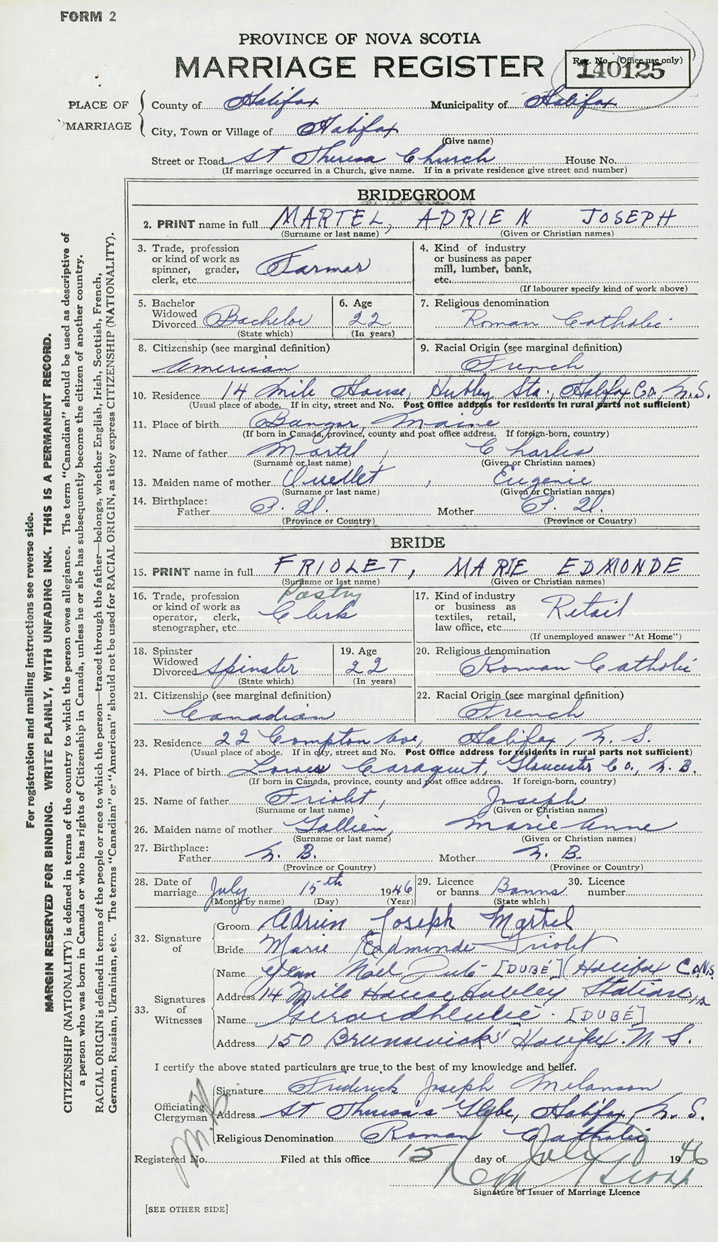 FORM 2
PROVINCE OF NOVA SCOTIA
MARRIAGE REGISTER
Reg. No. (Office use only)
140125
PLACE OF MARRIAGE
County of Halifax Municipality of Halifax
City, Town or Village of Halifax
(Give name)
Street or Road St Theresa Church House No.
(If marriage occurred in a Church, give name. If in a private residence give street and number)
BRIDEGROOM
2. PRINT name in full MARTEL, ADRIEN JOSEPH
(Surname or last name) (Given or Christian names)
3. Trade, profession or kind of work as spinner, grader, clerk, etc. Farmer
4. Kind of industry or business as paper mill, lumber, bank, etc.
(If labourer specify kind of work above)
5. Bachelor Widowed Divorced Bachelor
(State which)
6. Age 22
(In years)
7. Religious denomination
Roman Catholic
8. Citizenship (see marginal definition)
American
9. Racial Origin (see marginal definition)
French
10. Residence 14 Mile House, Hubley Sta., Halifx Co., N.S.
(Usual place of abode. If in city, street and No. Post Office address for residents in rural parts not sufficient)
11. Place of birth Bangor, Maine
(If born in Canada, province, county and post office address. If foreign-born, country)
12. Name of father Martel, Charles
(Surname or last name) (Given or Christian names)
13. Maiden name of mother Ouellet, Eugenie
(Surname or last name) (Given or Christian names)
14. Birthplace:
Father P. Q. Mother P. Q.
(Province or Country) (Province or Country)
BRIDE
15. PRINT name in full FRIOLET, MARIE EDMONDE
(Surname or last name) (Given or Christian names)
16. Trade, profession or kind of work as operator, clerk, stenographer, etc. Pastry Clerk
17. Kind of industry or business as textiles, retail, law office, etc. Retail
(If unemployed answer "At Home")
18. Spinster Widowed Divorced Spinster
(State which)
19. Age 22
(In years)
20. Religious denomination
Roman Catholic
21. Citizenship (see marginal definition)
Canadian
22. Racial Origin (see marginal definition)
French
23. Residence 22 Compton Ave, Halifax, N. S.
(Usual place of abode. If in city, street and No. Post Office address for residents in rural parts not sufficient)
24. Place of birth Lower Caraquet, Gloucester Co., N. B.
(If born in Canada, province, county and post office address. If foreign-born, country)
25. Name of father Friolet, Joseph
(Surname or last name) (Given or Christian names)
26. Maiden name of mother Gallien, Marie Anne
(Surname or last name) (Given or Christian names)
27. Birthplace:
Father N. B. Mother N. B.
(Province or Country) (Province or Country)
28. Date of marriage July 15th 1946
(Month by name) (Day) (Year)
29. Licence or banns Banns
(State which)
30. Licence number
32. Signature of
Groom Adrien Joseph Martel
Bride Marie Edmonde Friolet
33. Signatures of Witnesses
Name Jean Noel Dubé [DUBÉ] (Halifax Co N.S.
Address 14 Mile House Hubley Station
Name [DUBÉ]
Address 150 Brunswick St Halifax N. S.
I certify the above stated particulars are true to the best of my knowledge and belief.
Officiating Clergyman
Signature Frederick Joseph Melanson
Address St Theresa's Glebe, Halifax, N. S.
Religious Denomination Roman Catholic
Registered No. Filed at this office 15 day of July 1946
Signature of Issuer of Marriage Licence
[SEE OTHER SIDE]
For registration and mailing instructions see reverse side.
MARGIN RESERVED FOR BINDING. WRITE PLAINLY, WITH UNFADING INK. THIS IS A PERMANENT RECORD.
CITIZENSHIP (NATIONALITY) is defined in terms of the country to which the person owes allegiance. The term "Canadian" should be used as descriptive of
a person who was born in Canada or who has rights of Citizenship in Canada, unless he or she has subsequently become the citizen of another country.
RACIAL ORIGIN is defined in terms of the people or race to which the person—traced through the father—belongs, whether English, Irish, Scottish, French,
German, Russian, Ukrainian, etc. The terms "Canadian" or "American" should not be used for RACIAL ORIGIN, as they express CITIZENSHIP (NATIONALITY).